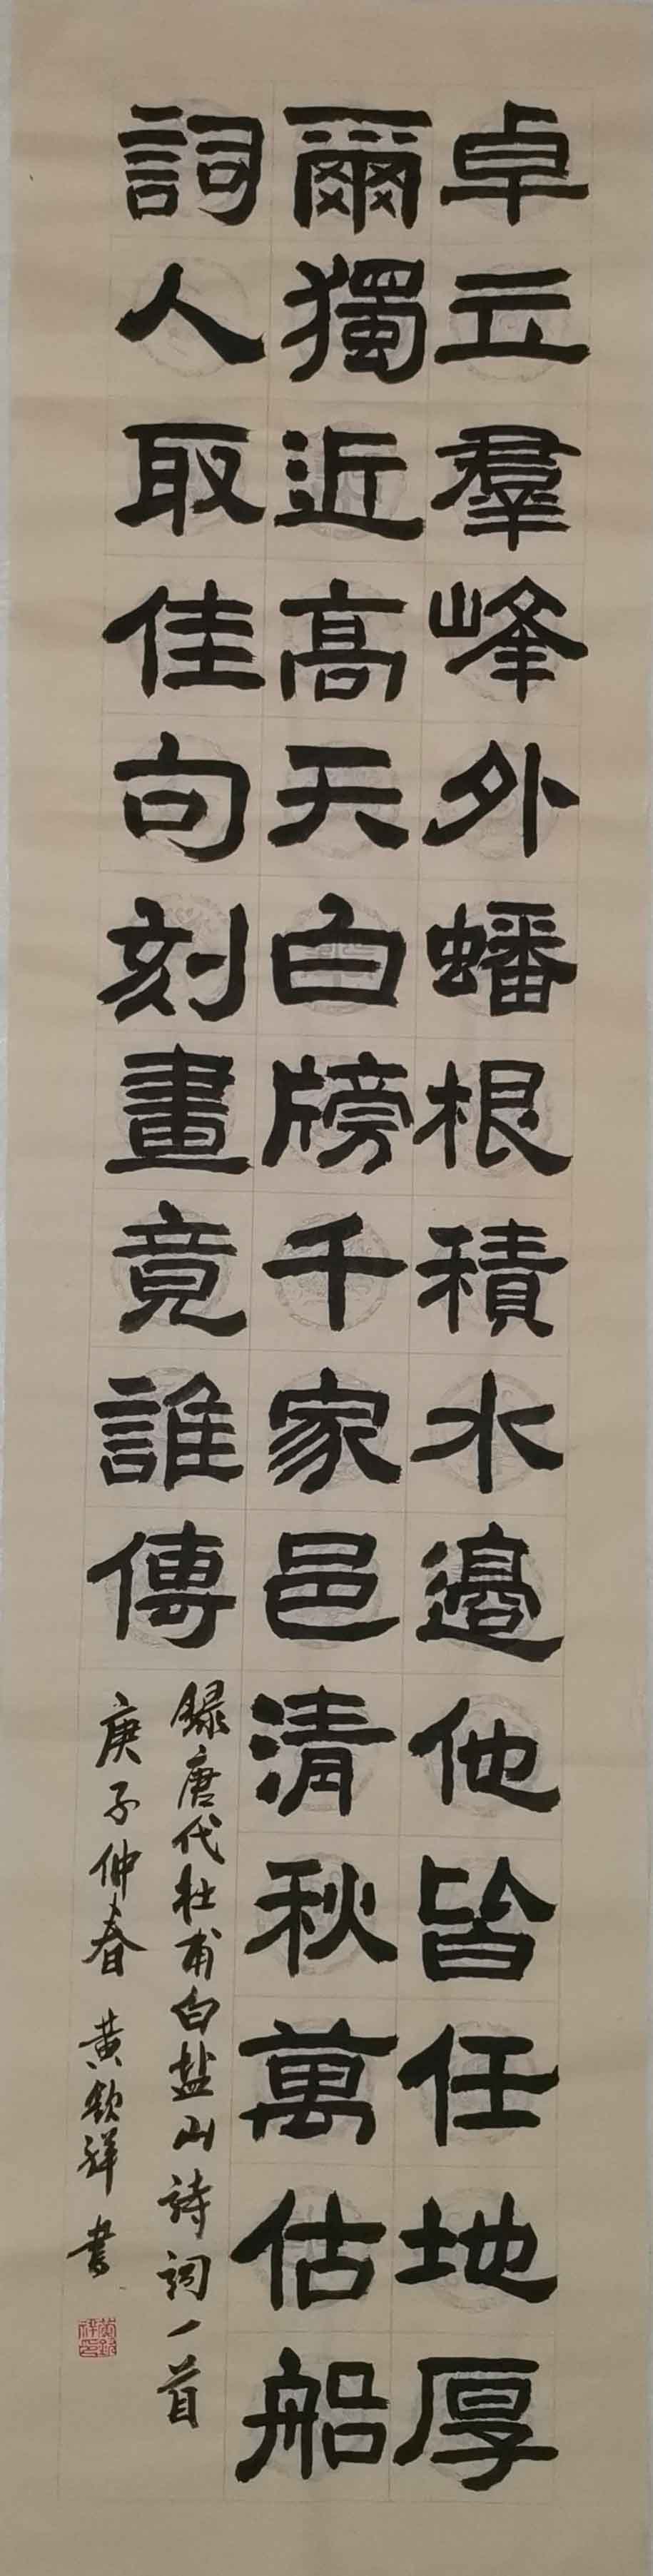 卓立羣峰外蟠根積水邊他皆任地厚
爾獨近高天白牓千家邑清秋萬估船
詞人取佳句刻畫竟誰傳
録唐代杜甫白盐山詩詞一首
庚子仲春 黄欽祥 書